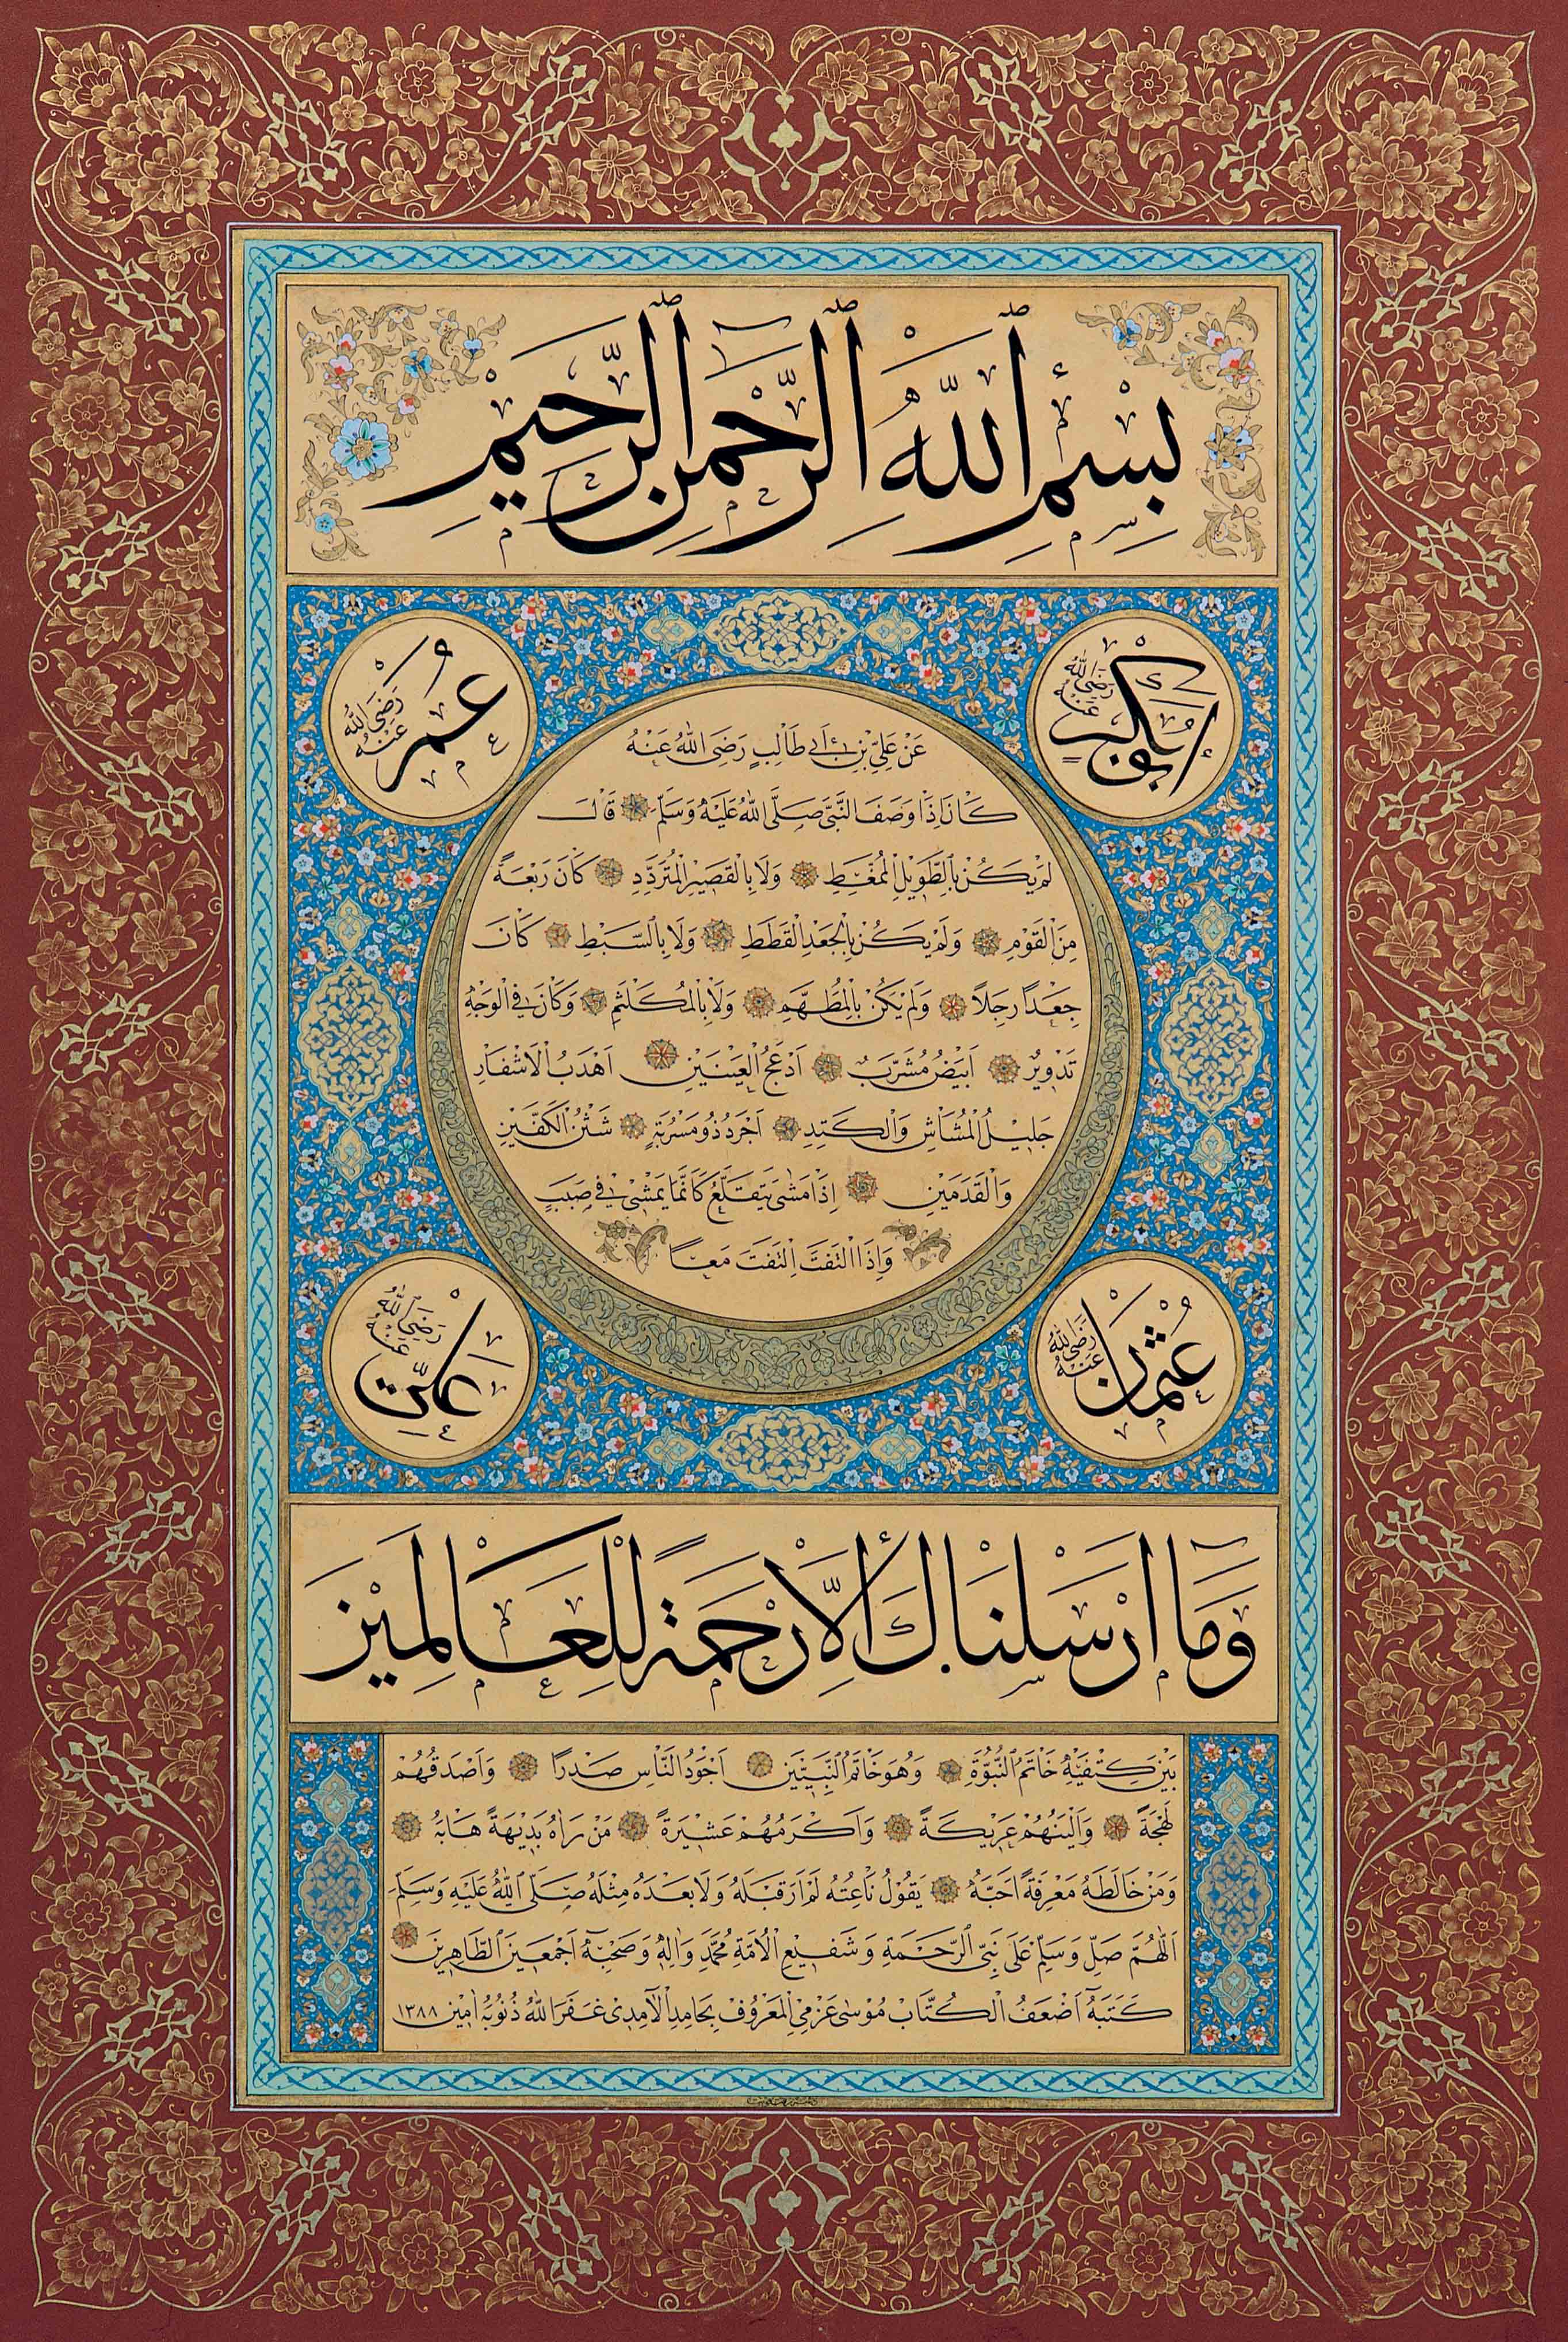 بِسْمِ اللّٰهِ الرَّحْمٰنِ الرَّحِيمِ
اَبُو بَكْر رَضِيَ اللّٰهُ عَنْهُ
عُمَر رَضِيَ اللّٰهُ عَنْهُ
عَنْ عَلِيِّ بْنِ اَبِي طَالِبٍ رَضِيَ اللّٰهُ عَنْهُ
كَانَ اِذَا وَصَفَ النَّبِيَّ صَلَّى اللّٰهُ عَلَيْهِ وَسَلَّمَ قَالَ
لَمْ يَكُنْ بِالطَّوِيلِ الْمُمَّغِطِ وَلَا بِالْقَصِيرِ الْمُتَرَدِّدِ كَانَ رَبْعَةً
مِنَ الْقَوْمِ وَلَمْ يَكُنْ بِالْجَعْدِ الْقَطَطِ وَلَا بِالسَّبْطِ كَانَ
جَعْداً رَجِلاً وَلَمْ يَكُنْ بِالْمُطَهَّمِ وَلَا بِالْمُكَلْثَمِ وَكَانَ فِي الْوَجْهِ
تَدْوِيرٌ اَبْيَضُ مُشَرَّبٌ اَدْعَجُ الْعَيْنَيْنِ اَهْدَبُ الْاَشْفَارِ
جَلِيلُ الْمُشَاشِ وَالْكَتِدِ اَجْرَدُ ذُو مَسْرُبَةٍ شَثْنُ الْكَفَّيْنِ
وَالْقَدَمَيْنِ اِذَا مَشٰى يَتَقَلَّعُ كَاَنَّمَا يَمْشِي فِي صَبَبٍ
وَاِذَا الْتَفَتَ اِلْتَفَتَ مَعاً
عُثْمَان رَضِيَ اللّٰهُ عَنْهُ
عَلِيّ رَضِيَ اللّٰهُ عَنْهُ
وَمَا اَرْسَلْنَاكَ اِلَّا رَحْمَةً لِلْعَالَمِينَ
بَيْنَ كِتْفَيْهِ خَاتَمُ النُّبُوَّةِ وَهُوَ خَاتَمُ النَّبِيِّينَ اَجْوَدُ النَّاسِ صَدْراً وَاَصْدَقُهُمْ
لَهْجَةً وَاَلْيَنُهُمْ عَرِيكَةً وَاَكْرَمُهُمْ عَشِيرَةً مَنْ رَاٰهُ بَدِيهَةً هَابَهُ
وَمَنْ خَالَطَهُ مَعْرِفَةً اَحَبَّهُ يَقُولُ نَاعِتُهُ لَمْ اَرَ قَبْلَهُ وَلَا بَعْدَهُ مِثْلَهُ صَلَّى اللّٰهُ عَلَيْهِ وَسَلَّمَ
اَللّٰهُمَّ صَلِّ وَسَلِّمْ عَلٰى نَبِيِّ الرَّحْمَةِ وَشَفِيعِ الْاُمَّةِ مُحَمَّدٍ وَاٰلِهِ وَصَحْبِهِ اَجْمَعِينَ الطَّاهِرِينَ
كَتَبَهُ اَضْعَفُ الْكُتَّابِ مُوسٰى عَزْمِي الْمَعْرُوفُ بِحَامِدِ الْآمِدِى غَفَرَ اللّٰهُ ذُنُوبَهُ اٰمِين ١٣٨٨